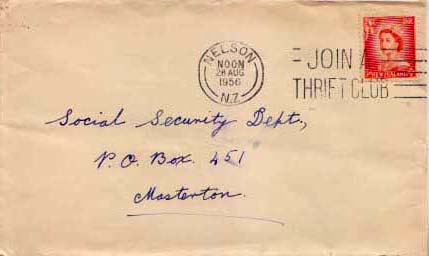 NELSON
NOON
28 AUG
1956
N.Z.
JOIN A
THRIFT CLUB
NEW ZEALAND
Social Security Dept.,
P.O. Box 451
Masterton.